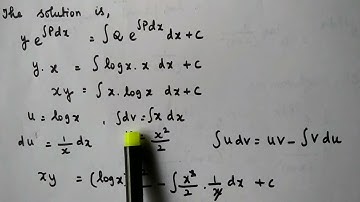 The solution is,
y e^{∫Pdx} = ∫Q e^{∫Pdx} dx + c
y. x = ∫ log x. x dx + c
xy = ∫ x. log x dx + c
u = log x , ∫dv = ∫x dx
du = 1/x dx = x²/2 ∫u dv = uv - ∫v du
xy = (log x) - ∫ x²/2 . 1/x dx + c